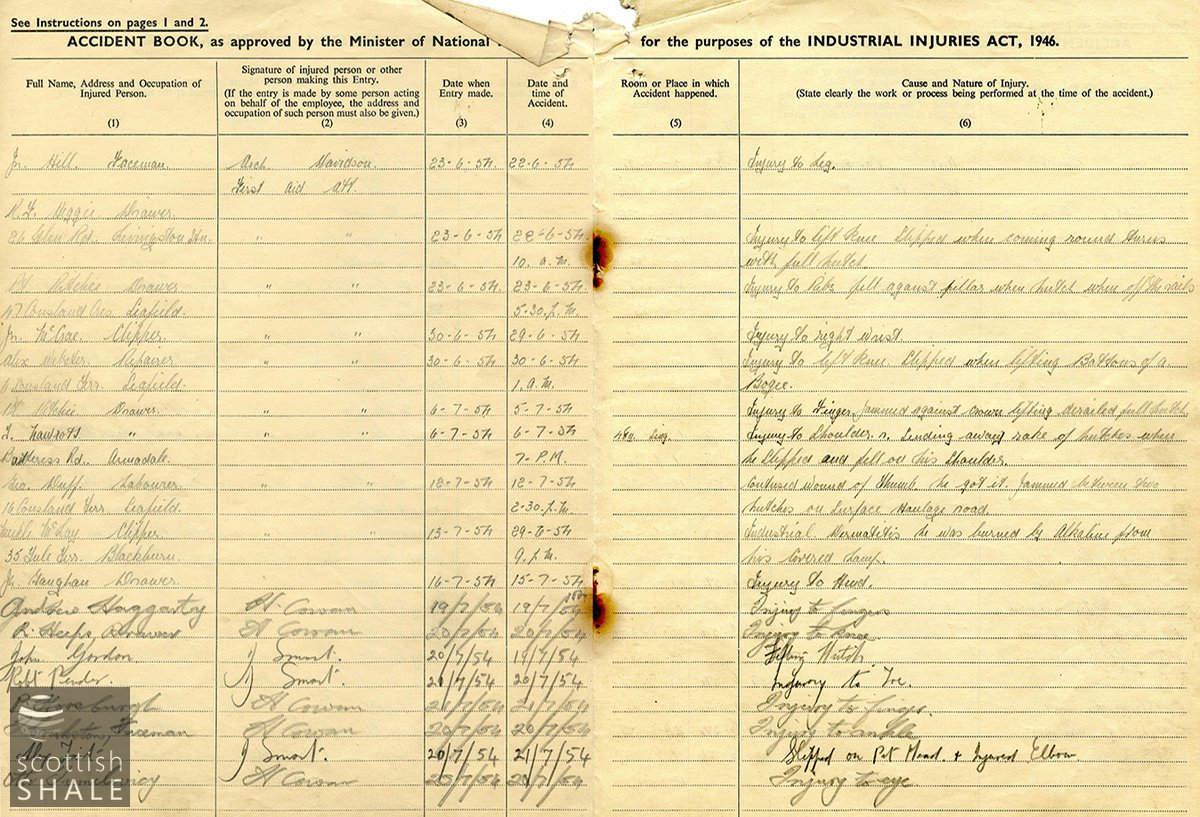 See Instructions on pages 1 and 2.
ACCIDENT BOOK, as approved by the Minister of National for the purposes of the INDUSTRIAL INJURIES ACT, 1946.
Full Name, Address and Occupation of Injured Person. (1)
Signature of injured person or other person making this Entry. (If the entry is made by some person acting on behalf of the employee, the address and occupation of such person must also be given.) (2)
Date when Entry made. (3)
Date and time of Accident. (4)
Room or Place in which Accident happened. (5)
Cause and Nature of Injury. (State clearly the work or process being performed at the time of the accident.) (6)
Jn. Hill. Faceman. Arch. Davidson. 23-6-54. 22-6-54 Injury to Leg.
First Aid Att.
Drawer.
Rd. Livingston Stn. " " 23-6-54 22-6-54 Injury to left Knee Slipped when coming round turns
10. a.m. with full hutch.
Ritchie Drawer " " 23-6-54 23-6-54 Injury to Ribs fell against pillar when hutch when of the rails
47 Cousland Cres Seafield. 5-30. P.M.
Jn. McCrae. Clipper. " " 30-6-54 29-6-54 Injury to right wrist.
Alex Webster. Repairer " " 30-6-54 30-6-54 Injury to left Knee. Slipped when lifting Battons of a
6 Cousland Terr. Seafield. 1. a.m. Bogie.
Ritchie Drawer. " " 6-7-54 5-7-54 Injury to Finger. Jammed against crown lifting derailed full hutch.
" " " 6-7-54 6-7-54 Injury to Shoulder. r. Sending away rake of hutches when
Rd. Armadale. 7-P.M. he Slipped and fell on his Shoulder.
Geo. Duff. Labourer. " " 12-7-54 12-7-54 Contused wound of Thumb he got it Jammed between two
16 Cousland Terr. Seafield. 2-30. P.M. hutches on Surface Haulage road.
McKay Clipper. " " 13-7-54 29-6-54 Industrial Dermatitis he was burned by Alkaline from
35 Yule Terr. Blackburn. 9. P.M. his Covered Lamp.
Jn. Gaughan Drawer. 16-7-54 15-7-54 Injury to Head.
Andrew Haggarty H Cowan 19/7/54 19/7/54 Injury to fingers
R. Heeps Drawer H Cowan 20/7/54 20/7/54 Injury to Knee
John Gordon J Smart. 20/7/54 19/7/54 Hutch.
Robt Pender. J Smart. 21/7/54 20/7/54 Injury to Toe
H Cowan 21/7/54 21/7/54 Injury to finger.
Faceman H Cowan 20/7/54 Injury to ankle
J Smart. 20/7/54 21/7/54 Slipped on Pit Head. & Injured Elbow
H Cowan 20/7/54 Injury to eye
scottish
SHALE